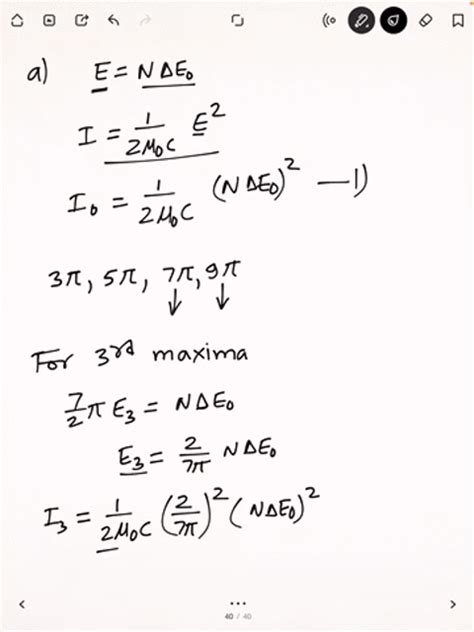 a) E = NΔE₀
I = 1/2μ₀c E²
I₀ = 1/2μ₀c (NΔE₀)² —1)
3π, 5π, 7π, 9π
↓ ↓
For 3rd maxima
7/2 π E₃ = NΔE₀
E₃ = 2/7π NΔE₀
I₃ = 1/2μ₀c (2/7π)² (NΔE₀)²
40 / 40